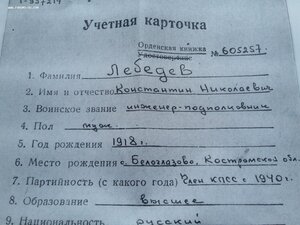 Учетная карточка
Орденская книжка
Удостоверение № 605257.
1. Фамилия Лебедев
2. Имя и отчество Константин Николаевич
3. Воинское звание инженер-подполковник
4. Пол муж
5. Год рождения 1918 г.
6. Место рождения с. Белоглазово, Костромской обл.
7. Партийность (с какого года) Член КПСС с 1940 г.
8. Образование высшее
9. Национальность русский